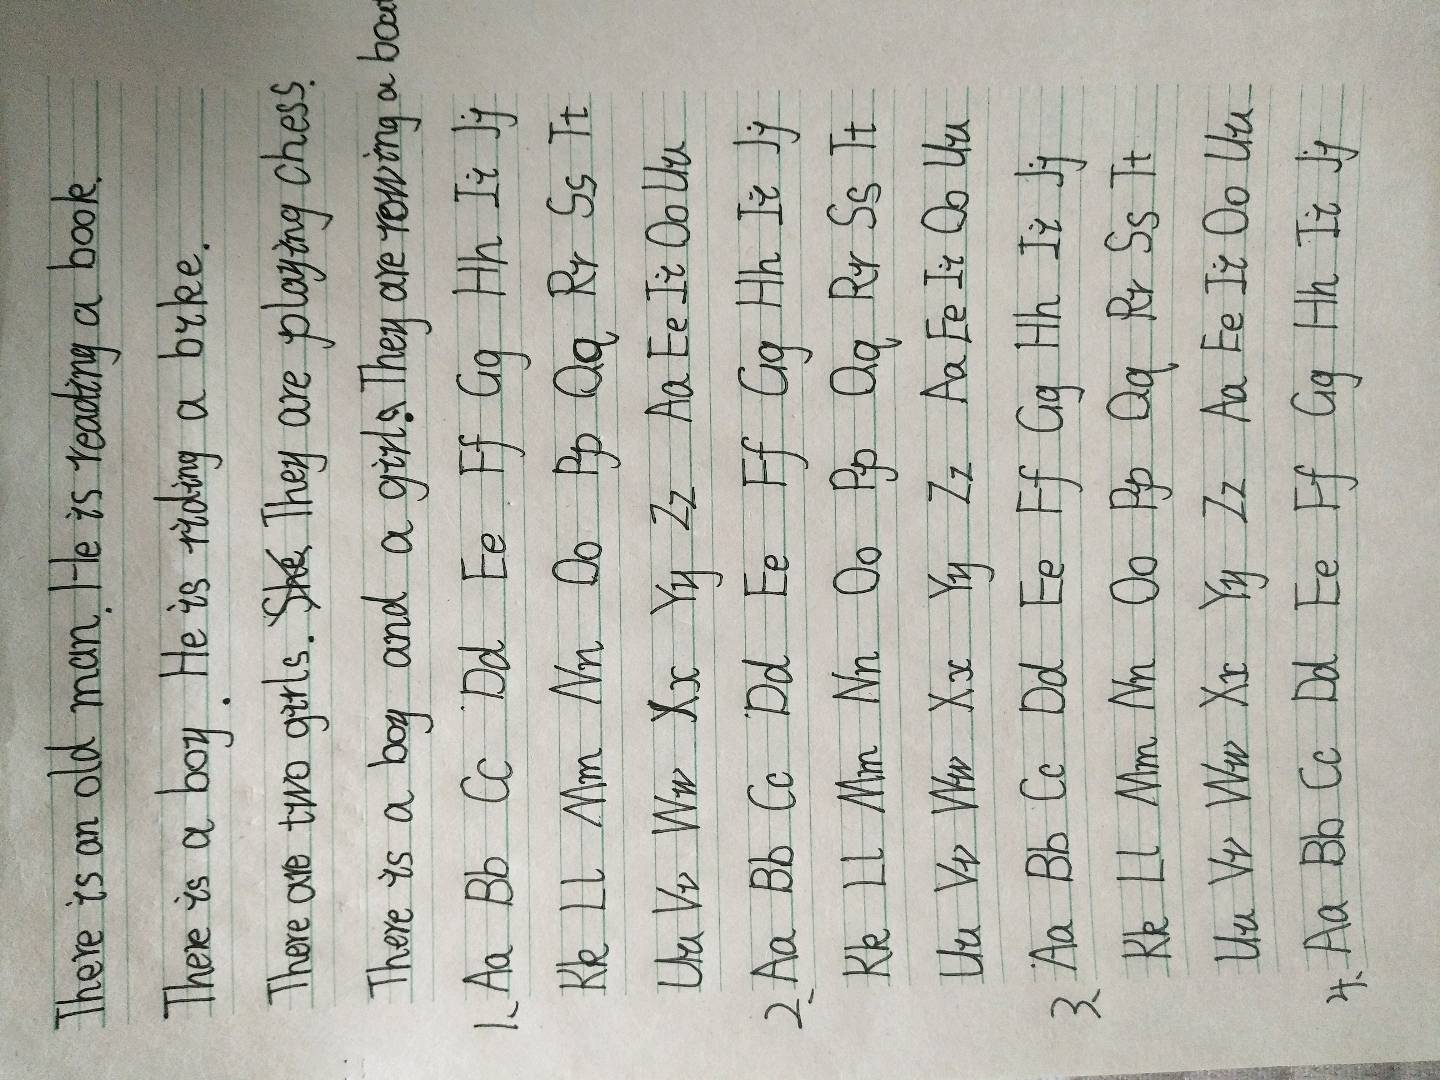 There is an old man. He is reading a book.
There is a boy. He is riding a bike.
There are two girls. She They are playing chess.
There is a boy and a girls. They are rowing a boat
1. Aa Bb Cc Dd Ee Ff Gg Hh Ii Jj
Kk Ll Mm Nn Oo Pp Qq Rr Ss Tt
Uu Vv Ww Xx Yy Zz Aa Ee Ii Oo Uu
2. Aa Bb Cc Dd Ee Ff Gg Hh Ii Jj
Kk Ll Mm Nn Oo Pp Qq Rr Ss Tt
Uu Vv Ww Xx Yy Zz Aa Ee Ii Oo Uu
3. Aa Bb Cc Dd Ee Ff Gg Hh Ii Jj
Kk Ll Mm Nn Oo Pp Qq Rr Ss Tt
Uu Vv Ww Xx Yy Zz Aa Ee Ii Oo Uu
4. Aa Bb Cc Dd Ee Ff Gg Hh Ii Jj